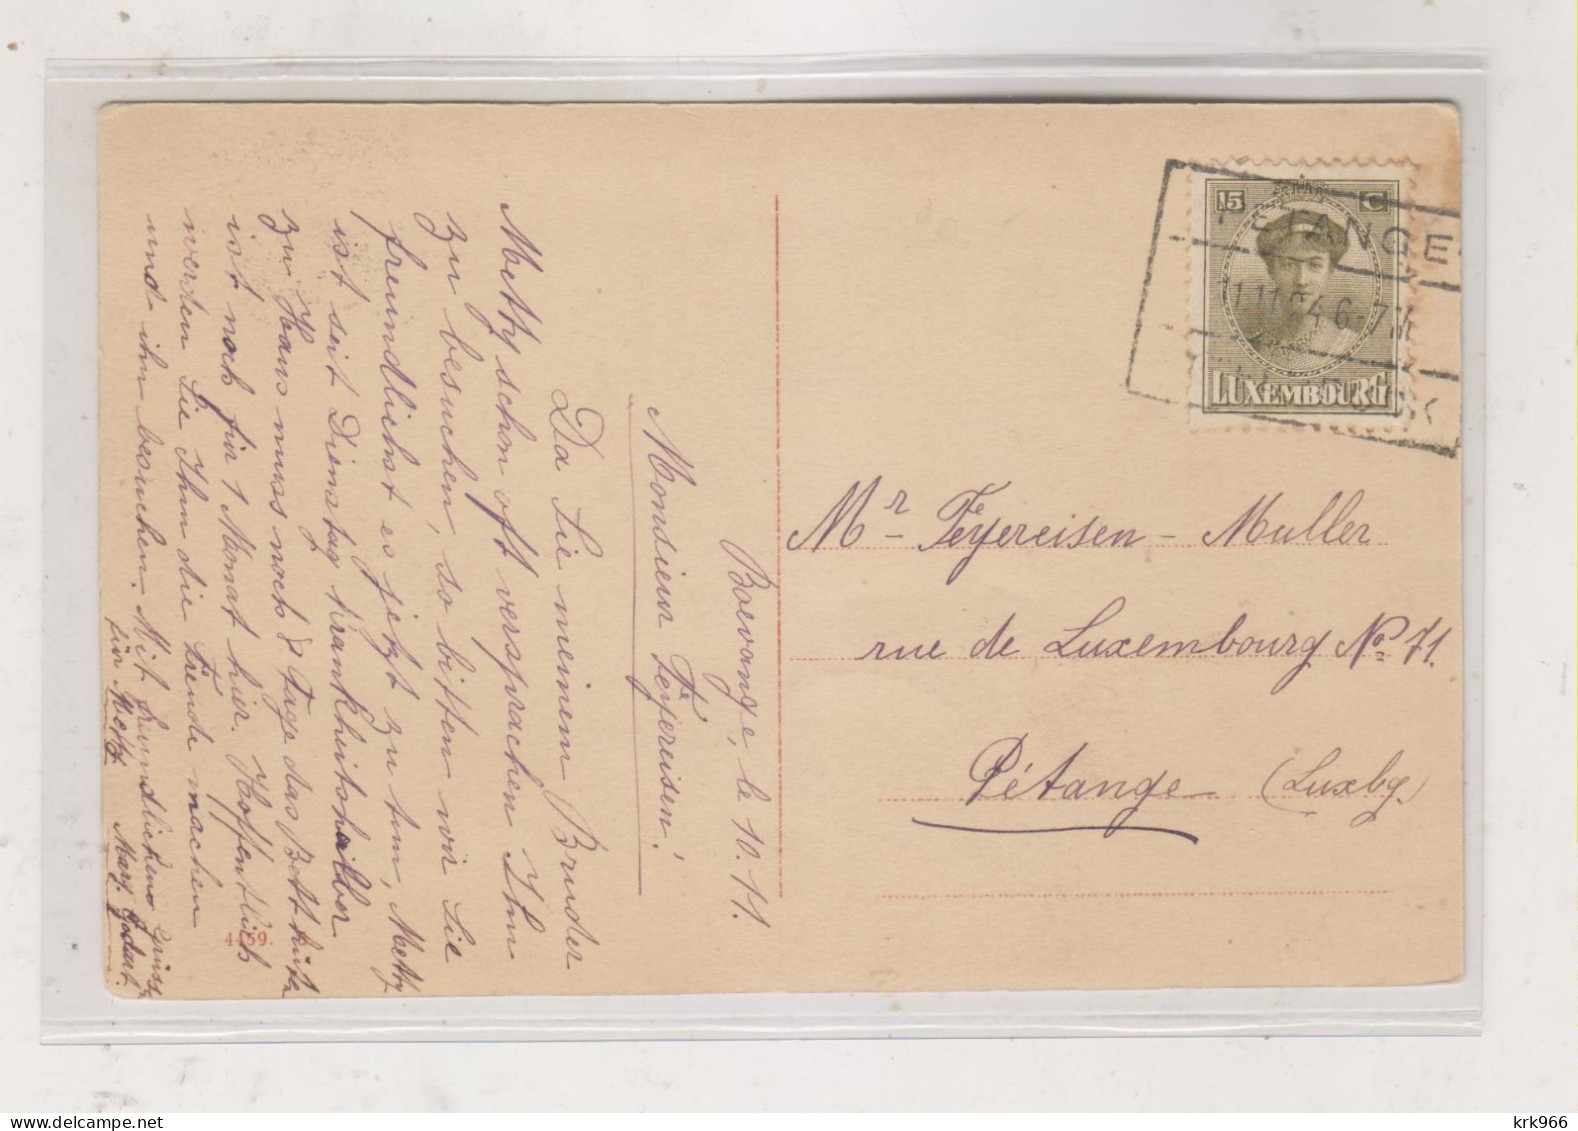 Boevange, le 10.11.
Monsieur Feyereisen!
Da Sie meinem Bruder
Metty schon oft versprachen Ihn
zu besuchen, so bitten wir Sie
freundlichst es jetzt zu tun, Metty
ist seit Dienstag krankheitshalber
zu Haus muss noch 8 Tage das Bett hüten
ist noch für 1 Monat hier. Hoffentlich
werden Sie Ihm die Freude machen
und ihn besuchen. Mit freundlichem Grüss
für Metty Marg. Godart.
4459.
15 C
LUXEMBOURG
TANGE
6-7
Mr Feyereisen - Muller
rue de Luxembourg No 71.
Pétange (Luxbg.)
krk966